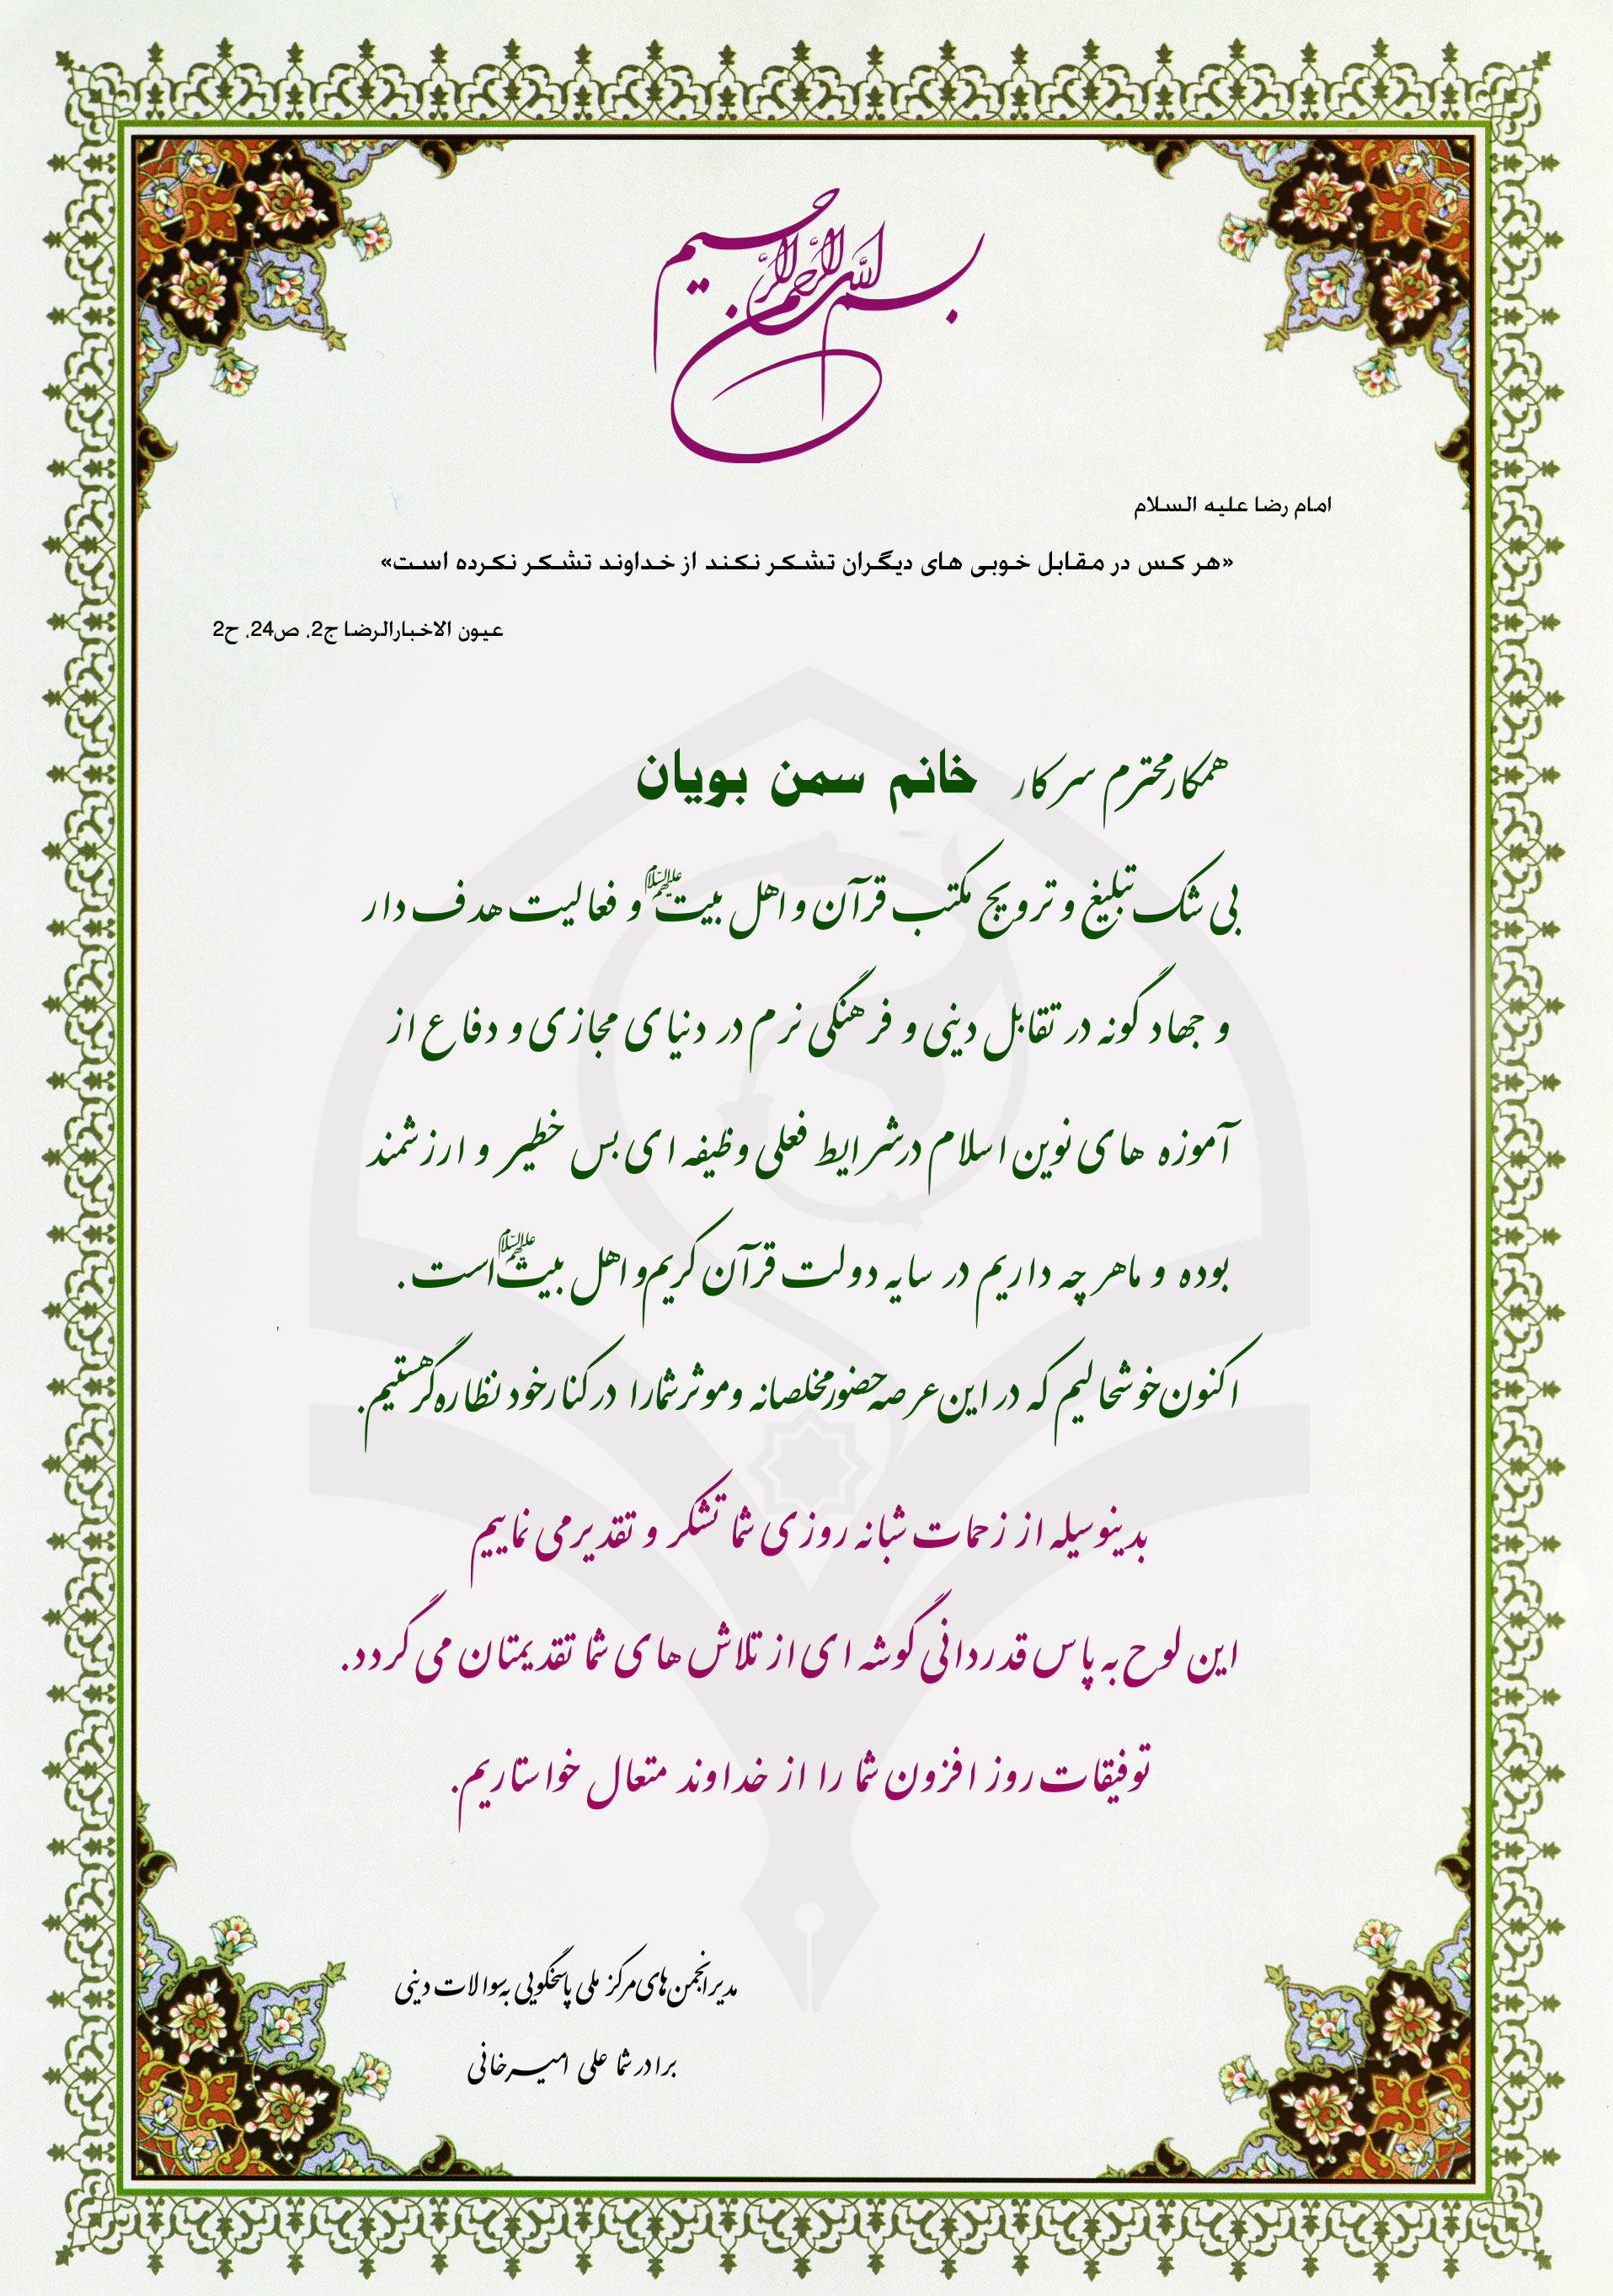 بسم الله الرحمن الرحیم
امام رضا علیه السلام
«هر کس در مقابل خوبی های دیگران تشکر نکند از خداوند تشکر نکرده است»
عیون الاخبارالرضا ج2، ص24، ح2
همکارمحترم سرکار خانم سمن بویان
بی شک تبلیغ و ترویج مکتب قرآن و اهل بیت علیهم السلام و فعالیت هدف دار
و جهاد گونه در تقابل دینی و فرهنگی نرم در دنیای مجازی و دفاع از
آموزه های نوین اسلام درشرایط فعلی وظیفه ای بس خطیر و ارزشمند
بوده و ماهر چه داریم در سایه دولت قرآن کریم و اهل بیت علیهم السلام است .
اکنون خوشحالیم که در این عرصه حضور مخلصانه وموثر شمارا در کنار خود نظاره گر هستیم.
بدینوسیله از زحمات شبانه روزی شما تشکر و تقدیر می نماییم
این لوح به پاس قدردانی گوشه ای از تلاش های شما تقدیمتان می گردد.
توفیقات روز افزون شما را از خداوند متعال خواستاریم.
مدیر انجمن های مرکز ملی پاسخگویی به سوالات دینی
برادر شما علی امیرخانی